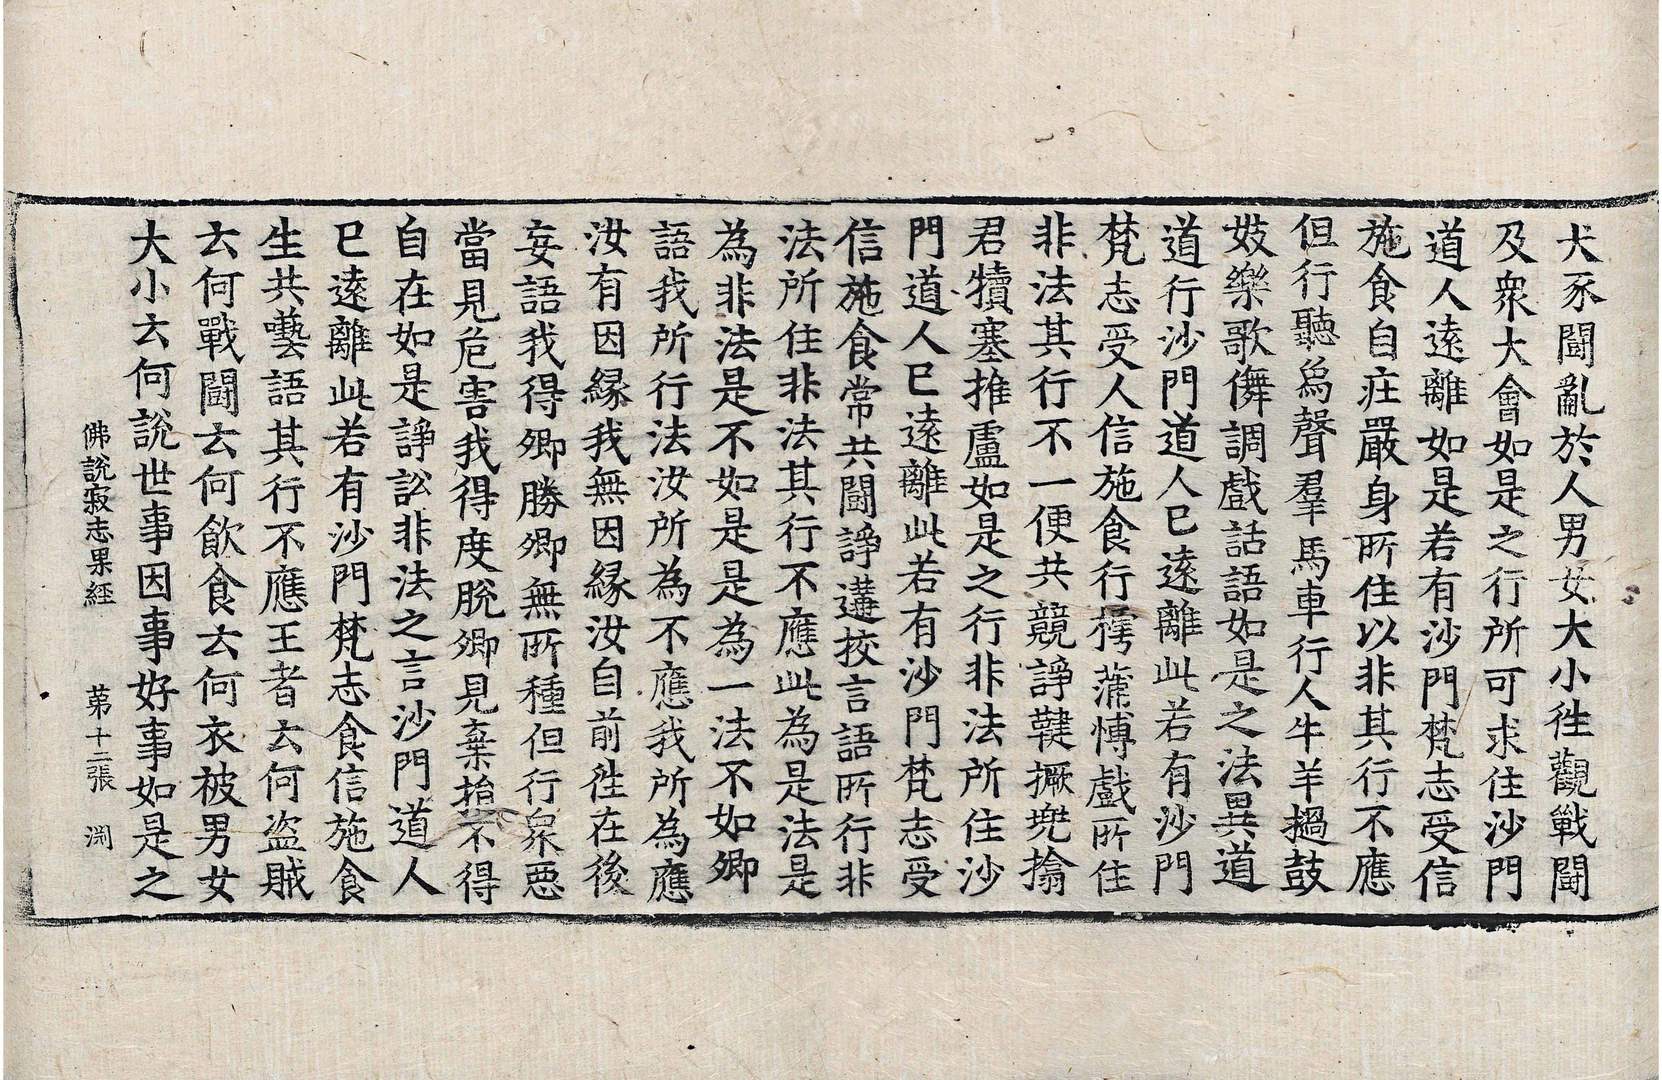 犬豕鬪亂於人男女大小徃觀戰鬪
及衆大會如是之行所可求住沙門
道人遠離如是若有沙門梵志受信
施食自庄嚴身所住以非其行不應
但行聽烏聲羣馬車行人牛羊撾鼓
妓樂歌儛調戲話語如是之法異道
道行沙門道人已遠離此若有沙門
梵志受人信施食行摴蒲愽戲所住
非法其行不一便共競諍鞬撅兠擒
君犢塞推盧如是之行非法所住沙
門道人已遠離此若有沙門梵志受
信施食常共鬪諍遘挍言語所行非
法所住非法其行不應此為是法是
為非法是不如是是為一法不如卿
語我所行法汝所為不應我所為應
汝有因縁我無因縁汝自前徃在後
妄語我得卿勝卿無所種但行衆惡
當見危害我得度脫卿見棄捐不得
自在如是諍訟非法之言沙門道人
已遠離此若有沙門梵志食信施食
生共囈語其行不應王者云何盗賊
云何戰鬪云何飲食云何衣被男女
大小云何說世事因事好事如是之
佛說寂志果經 苐十二張 渊